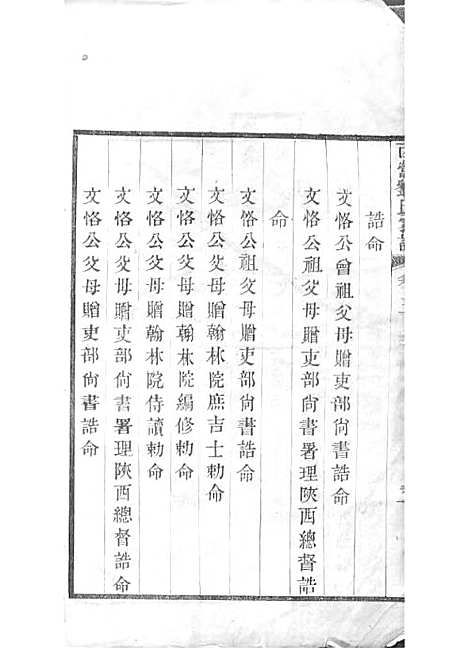 誥命
文恪公曾祖父母贈吏部尙書誥命
文恪公祖父母贈吏部尙書署理陝西總督誥
命
文恪公祖父母贈吏部尙書誥命
文恪公父母贈翰林院庶吉士勅命
文恪公父母贈翰林院編修勅命
文恪公父母贈翰林院侍讀勅命
文恪公父母贈吏部尙書署理陝西總督誥命
文恪公父母贈吏部尙書誥命